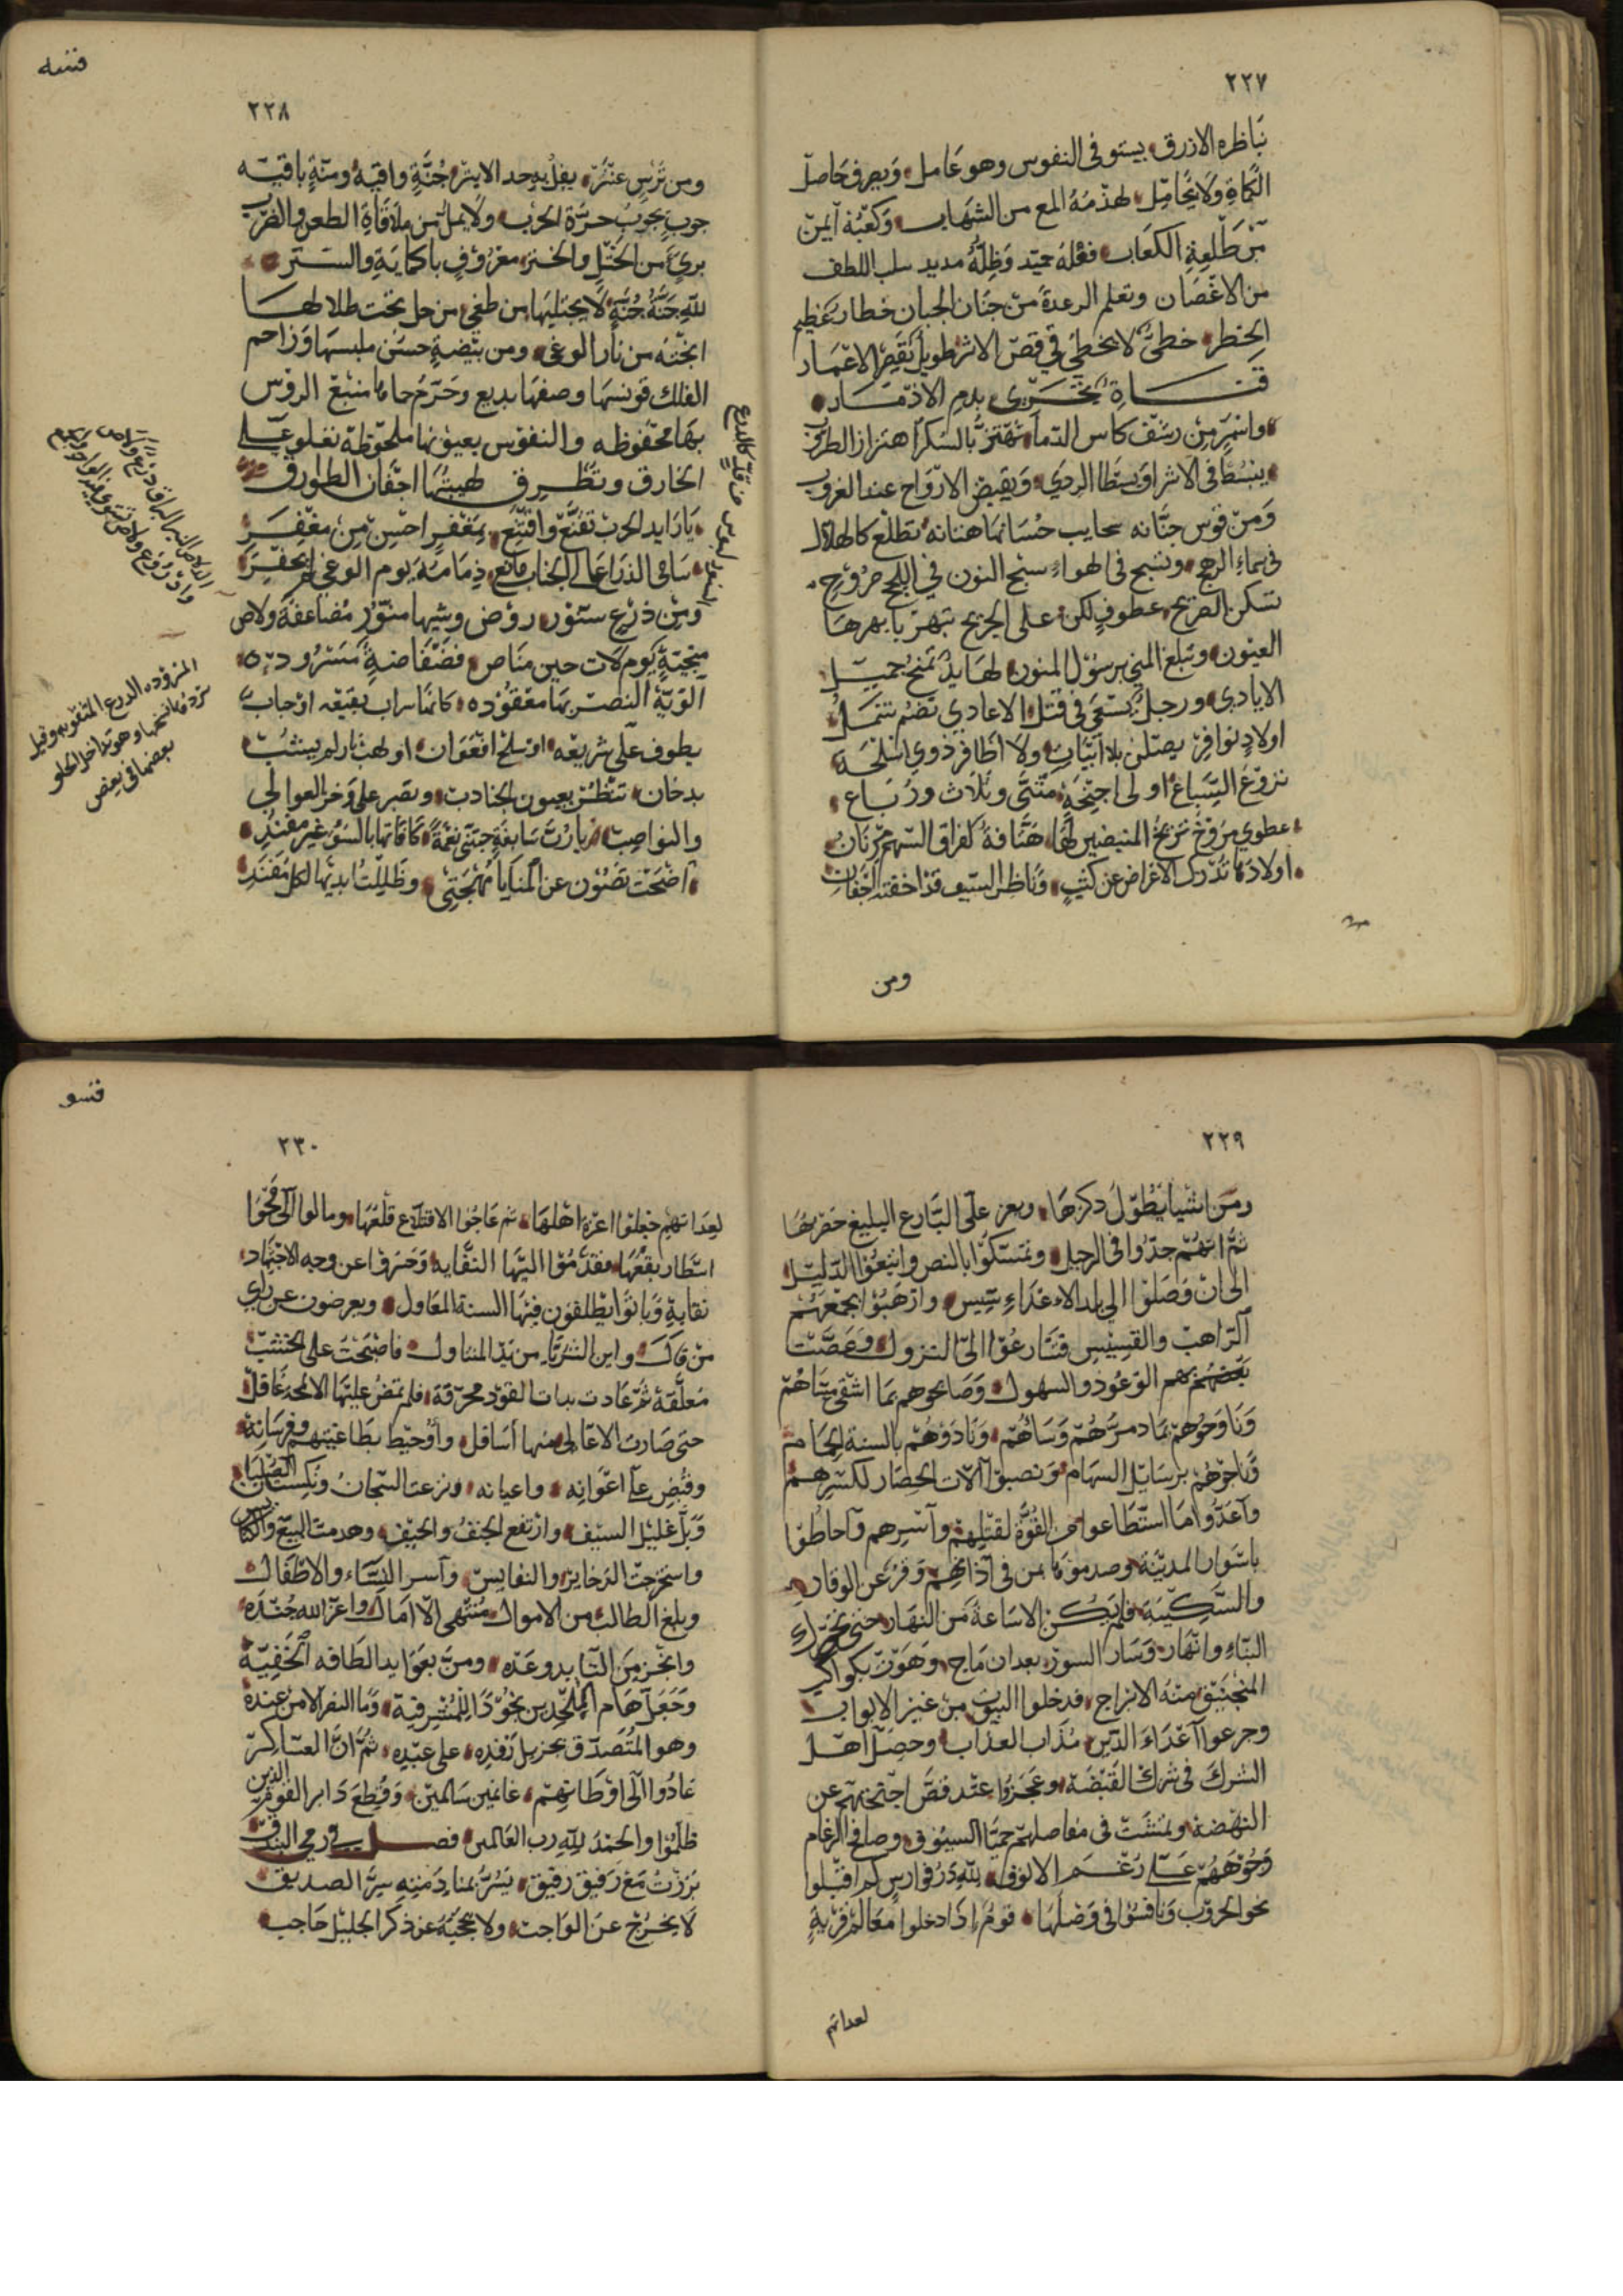 ٢٢٧
بناظره الازرق يستوفى النفوس وهو عامل ويعرف حاصل
الكماة ولا يحامل لهذمه المع من الشهاب وكعبه ايمن
من طلعة الكعاب فعله حميد وظله مديد سلب اللطف
من الاغصان وتعلم الرعدة من جنان الجبان خطار عظيم
الخطر خطى لا يخطى في قص الاثر طويل يقصر الاعمار
قناة بدم الاذمار
واسمر من رشف كاس الدما يهتز بالسكر اهتزاز الطروب
ينبسط فى الاشراق بسطا الردى ويقبض الارواح عند الغروب
ومن قوس حنانه سحايب حسبانها هتانه تطلع كالهلال
فى سماء الرهج وتسبح فى الهواء سبح النون في اللجج مروح
تسكن الضريح عطوف لكن على الجريح تبهر بابهرها
العيون وتبلغ المنى برسول المنون لها يد تمنح جميل
الايادى ورجل تسعى فى قتل الاعادى تضم شمل
اولاد نوافر يصلن بلا انياب ولا اظافر ذوي اسلحة
تروع السباع اولى اجنحة مثنى وثلاث ورباع
عطوى مروح تزيح المنبضين لها هتافة لفراق السهم مرنان
اولادها تدرك الاغراض عن كثب وناظر السيف قد اخفته اجفان
ومن
فنسه
٢٢٨
ومن ترس عنتر يفل به حد الابتر جنة واقية ومنة باقيه
جوب يجوب حرة الحرب ولا يمل من ملاقاة الطعن والضرب
برى من الختل والختر معروف بالحماية والستر
لله جنة جنة لا يجتليها من طغى من حل تحت ظلالها
انجته من نار الوغى ومن بيضة حسن ملبسها وزاحم
الفلك قونسها وصفها بديع وحرم حاماها منيع الروس
بها محفوظه والنفوس بعيونها ملحوظة تعلو على
الخارق وتطرق لهيبتها اجفان الطوارق
يا رايد الحرب تقنع واقتنع بمغفر احسن من مغفر
سامى الذرا عالى الجناب مانع ذمامه يوم الوغى لم يخفر
ومن درع ستور روض وشيها منثور مضاعفة ولاص
منجية يوم لات حين مناص فضفاضة مسروده
الوية النصر بها معقوده كانها سراب بقيعه او حباب
يطوف على شريعه او سلخ افعوان او لهب نار لم يشب
بدخان تنظر بعيون الجنادب وتصبر على وخز العوالي
والقواضب يارب سابغة حبتنى نعمة كافاتها بالسوء غير مفند
اضحت تصون عن المنايا مهجتى وظللت ابذلها لكل مهند
المزروده الدرع المثقوبه وقيل
سردها نسجها وهو تداخل الحلق
بعضها فى بعض
٢٢٩
ومن اشيا يطول ذكرها ويعز على البارع البليغ حصرها
ثم انهم جدوا فى الرحيل وتمسكوا بالنص واتبعوا الدليل
الى ان وصلوا الى بلد الاعداء سيس وارهبوا بجمعهم
الراهب والقسيس فتسارعوا الى النزول وغصت
بعضهم بهم الوعود والسهول وصابحوهم بما اشقى مساهم
وناوحوهم بما دمرهم وساهم ونادوهم بالسنة الحام
وناجوهم برسايل السهام ونصبوا آلات الحصار لكسرهم
واعدوا ما استطاعوا من القوة لقتلهم واسرهم واحاطوا
باسوار المدينة وصدموها بمن فى آذانهم وقر عن الوقار
والسكينة فلم يكن الا ساعة من النهار حتى خر
البناء وانهار وسار السور بعد ان ماج وهوت بكواكب
المنجنيق منه الابراج فدخلوا البيوت من غير الابواب
وجرعوا اعداء الدين مذاب العذاب وحصل اهل
الشرك فى شرك القبضة وعجزوا عند قص اجنحتهم عن
النهضة وتمشت فى مفاصلهم حميا السيوف وصافح الرغام
وجوههم على رغم الانوف لله در فوارس كم اقبلوا
نحو الحروب ونافسوا فى وصلها قوم اذا دخلوا معالم قرية
لعداتهم
فنسو
٢٣٠
لعداتهم جعلوا اعزة اهلها ثم عاجوا لاقتلاع قلعها ومالوا الى محو
اسطار بقعها فقدموا اليها النقابه وحسروا عن وجه الاجتهاد
نقابه وباتوا يطلقون فيها السنة المعاول ويعرضون عن راى
من قال واين الثريا من يد المتناول فاصبحت على الخشب
معلقة ثم عادت بنات القود محرقة فلم تمض عليها الا لمحة غافل
حتى صارت الاعالى منها اسافل واحيط بطاغيتهم وفرسانه
وقبض على اعوانه واعيانه ونزعت التيجان ونكست الصلبان
وبل غليل السيف وارتفع الجنف والحيف وهدمت البيع والكنايس
واستخرجت الذخاير والنفايس وآسر النساء والاطفال
وبلغ الطالب من الاموال منتهى الآمال واعز الله جنده
وانجز من التاييد وعده ومن بعوايد الطافه الخفية
وجعل هام الملحدين نجودا للمشرفية وما النصر الا من عنده
وهو المتصدق بجزيل رفده على عبده ثم ان العساكر
عادوا الى اوطانهم غانمين سالمين وقطع دابر القوم الذين
ظلموا والحمد لله رب العالمين فصل في رمى البندق
برزت مع رفيق رقيق يسر بمنادمته سر الصديق
لا يخرج عن الواجب ولا يحجبه عن ذكر الجليل حاجب